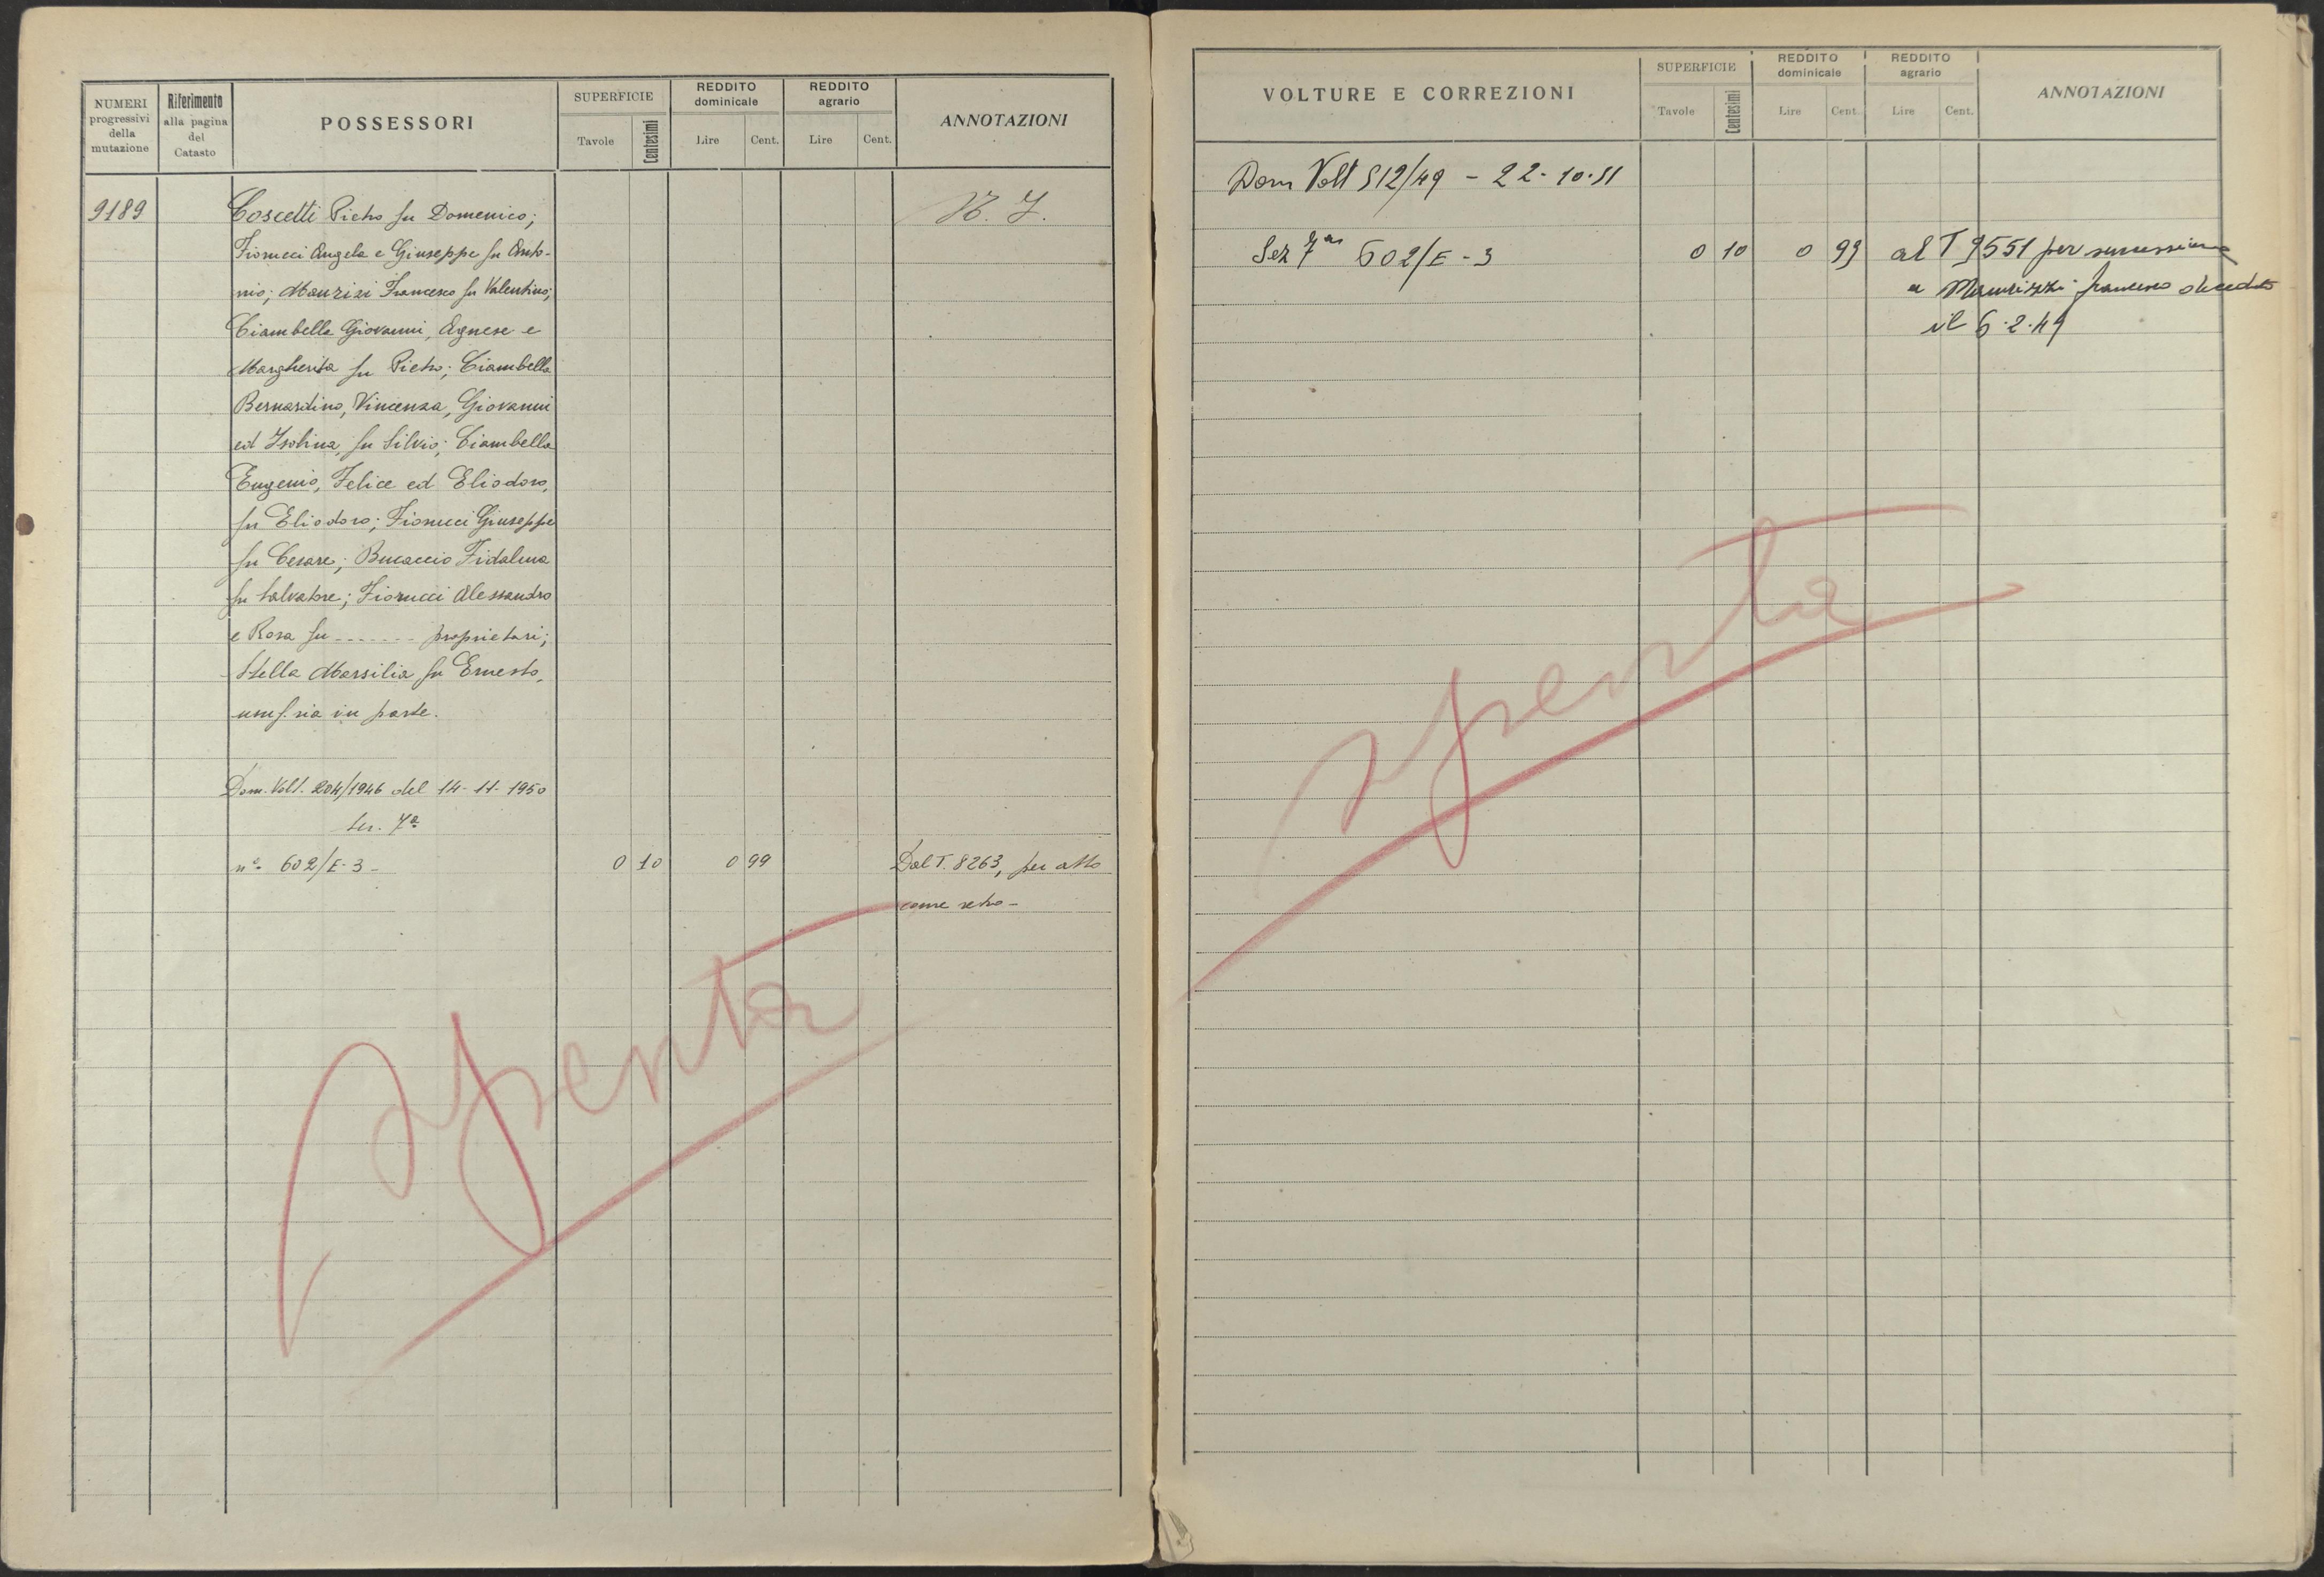 NUMERI progressivi della mutazione
Riferimento alla pagina del Catasto
POSSESSORI
SUPERFICIE
Tavole
Centesimi
REDDITO dominicale
Lire
Cent.
REDDITO agrario
Lire
Cent.
ANNOTAZIONI
9189
Coscetti Pietro fu Domenico;
Fiorucci Angela e Giuseppe fu Anto-
nio; Maurizi Francesco fu Valentino;
Ciambella Giovanni, Agnese e
Margherita fu Pietro; Ciambella
Bernardino, Vincenza, Giovanni
ed Isolina, fu Silvio; Ciambella
Eugenio, Felice ed Eliodoro,
fu Eliodoro; Fiorucci Giuseppe
fu Cesare; Bucaccio Fidalma
fu Salvatore; Fiorucci Alessandro
e Rosa fu ....... proprietari;
Stella Marsilia fu Ernesto,
usuf.ria in parte.
Dom. Volt. 204/1946 del 14-11-1950
Sez. 7ª
n° 602/E-3 - 0 10 0 99 Dal T. 8263, per atto
come retro -
spenta
VOLTURE E CORREZIONI
SUPERFICIE
Tavole
Centesimi
REDDITO dominicale
Lire
Cent.
REDDITO agrario
Lire
Cent.
ANNOTAZIONI
Dom Volt 512/49 - 22-10-51
Sez 7ª 602/E-3 0 10 0 99 al T 9551 per successione
a Maurizzi francesco deceduto
il 6-2-49
spenta